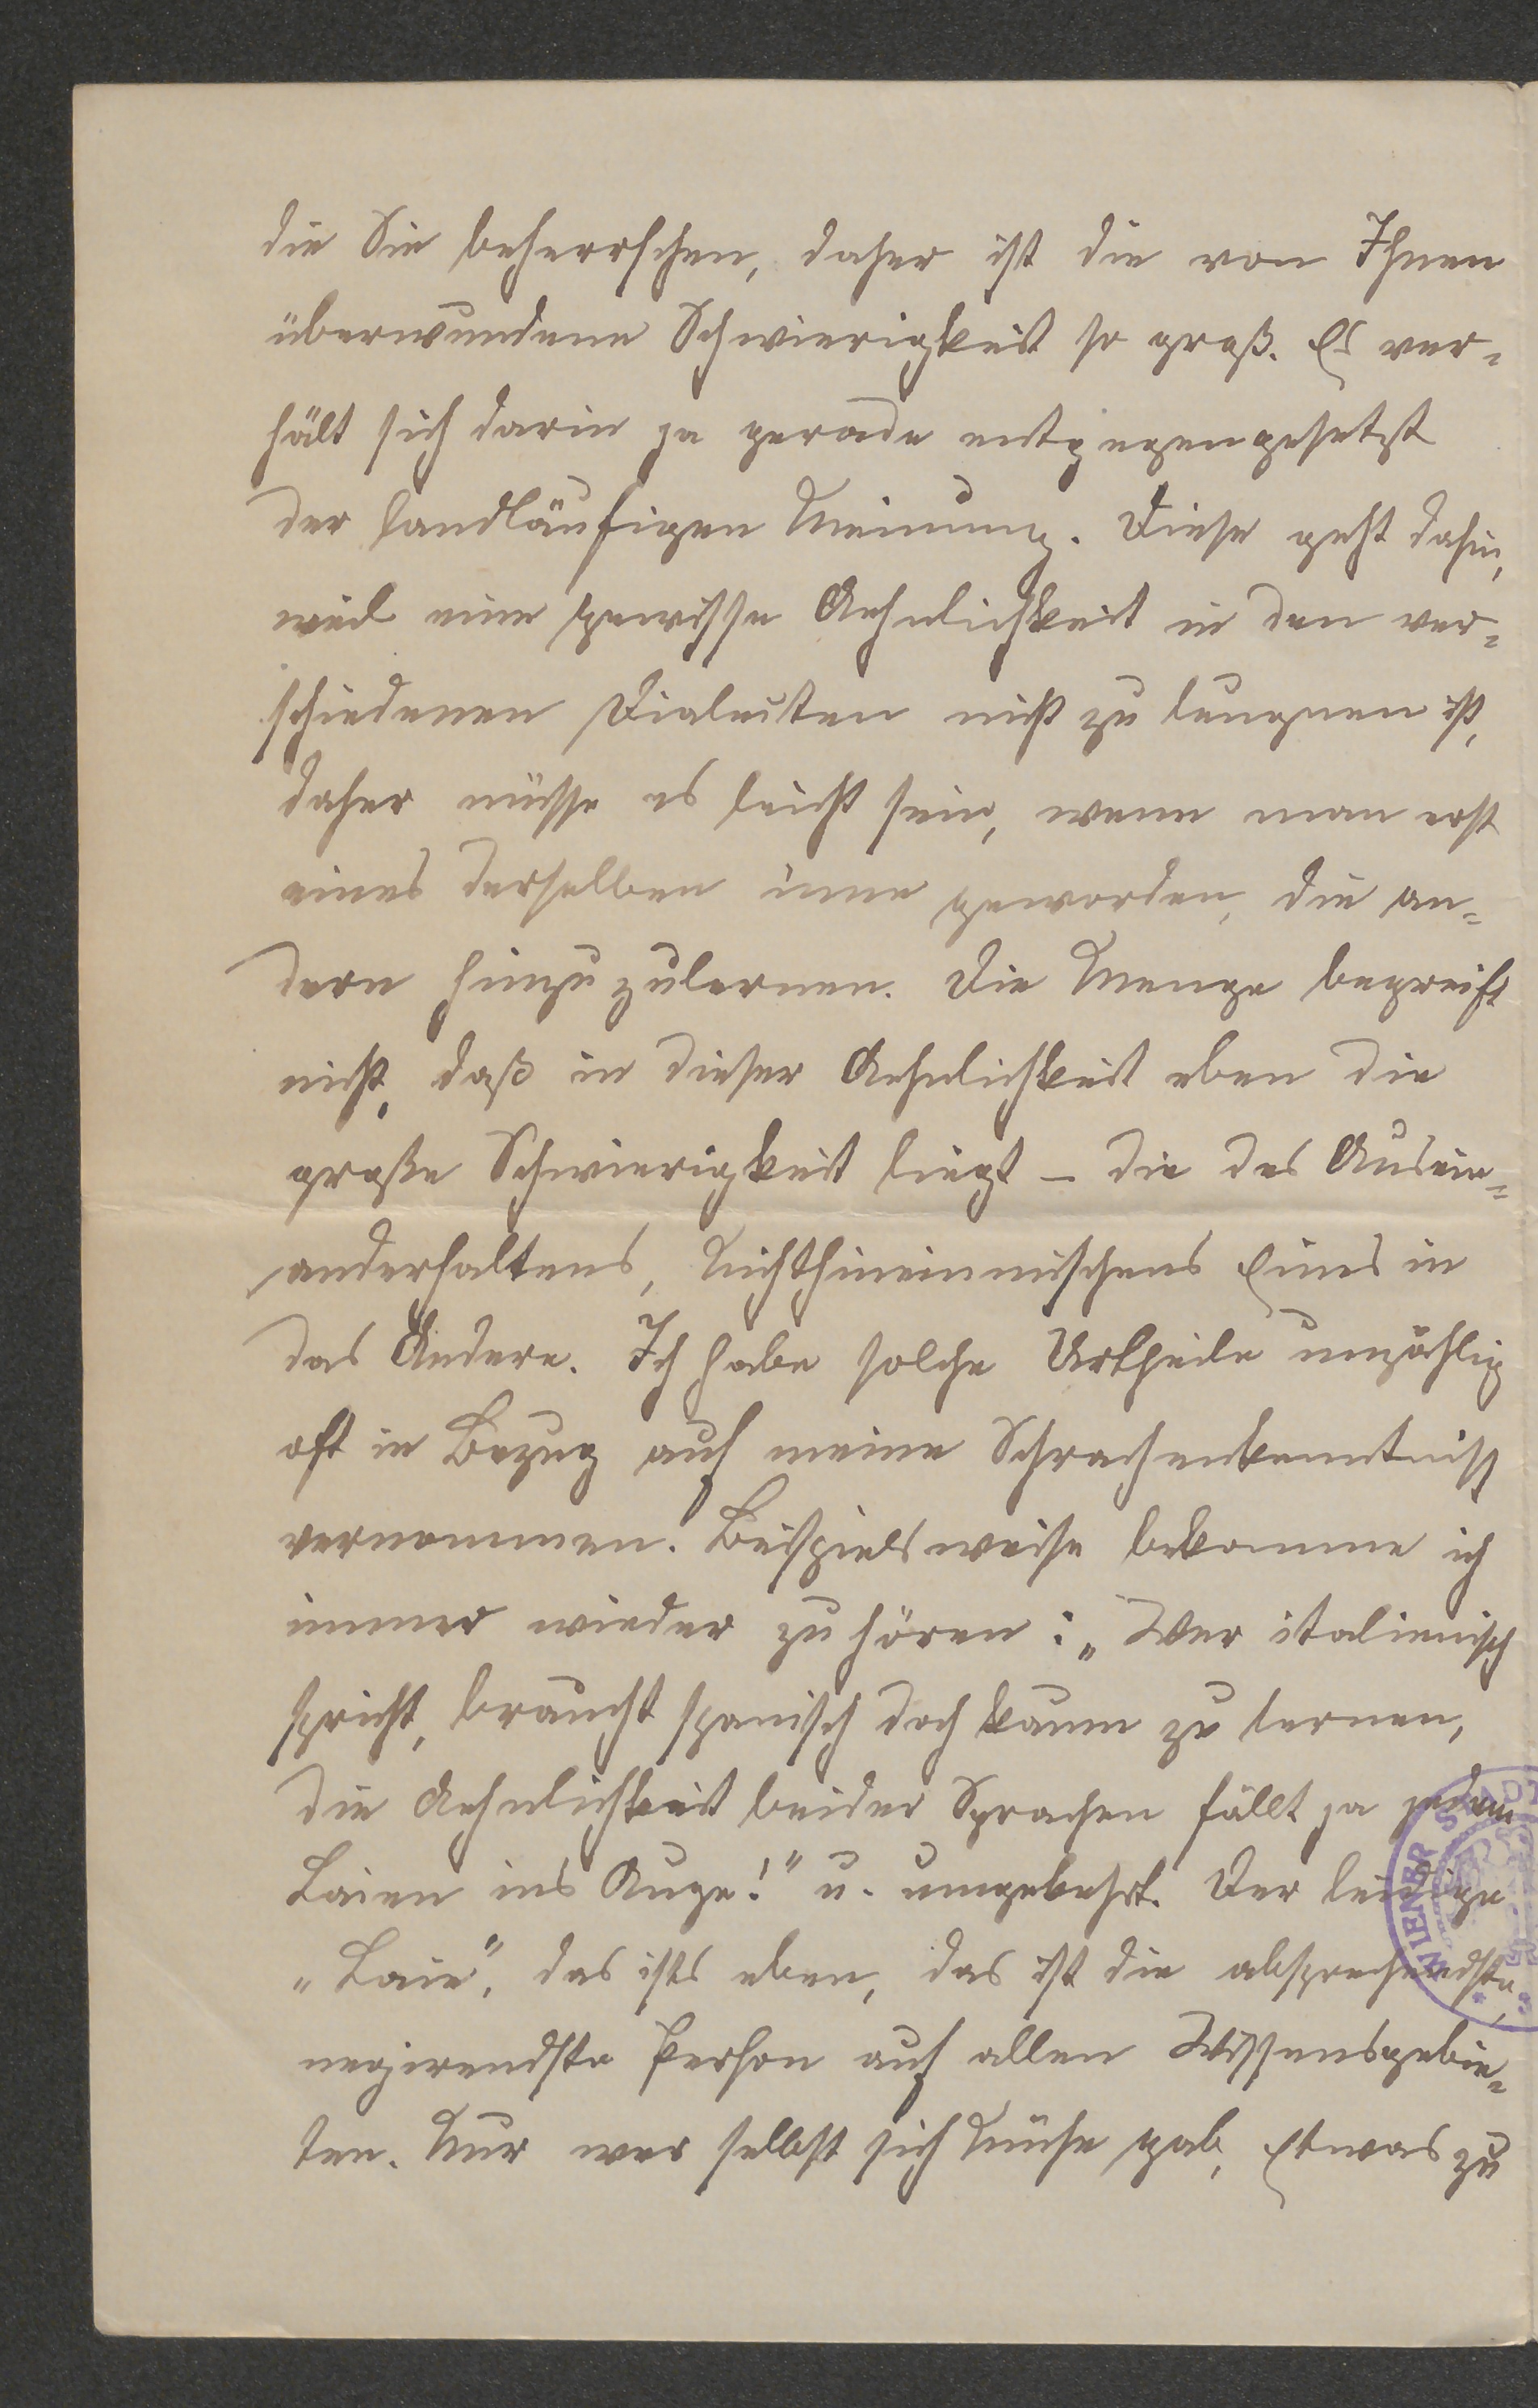 die Sie beherrschen, daher ist die von Ihnen
überwundene Schwierigkeit so groß. Es ver-
hält sich darin ja gerade entgegengesetzt
der landläufigen Meinung. Diese geht dahin,
weil eine gewisse Aehnlichkeit in den ver-
schiedenen Dialecten nicht zu leugnen ist,
daher müsse es leicht sein, wenn man erst
eines derselben inne geworden, die an-
dern hinzuzulernen. Die Menge begreift
nicht, daß in dieser Aehnlichkeit eben die
große Schwierigkeit liegt – die des Ausein-
anderhaltens, Nichthineinmischens Eines in
das Andere. Ich habe solche Urtheile unzählig
oft in Bezug auf meine Sprachenkenntniß
vernommen. Beispielsweise bekomme ich
immer wieder zu hören: „Wer italienisch
spricht, braucht spanisch doch kaum zu lernen,
die Aehnlichkeit beider Sprachen fällt ja jedem
Laien ins Auge!" u. umgekehrt. Der leidige
„Laie", das ists eben, das ist die absprechendste,
negirendste Person auf allen Wissensgebie-
ten. Nur wer selbst sich Mühe gab, Etwas zu
WIENER STADT